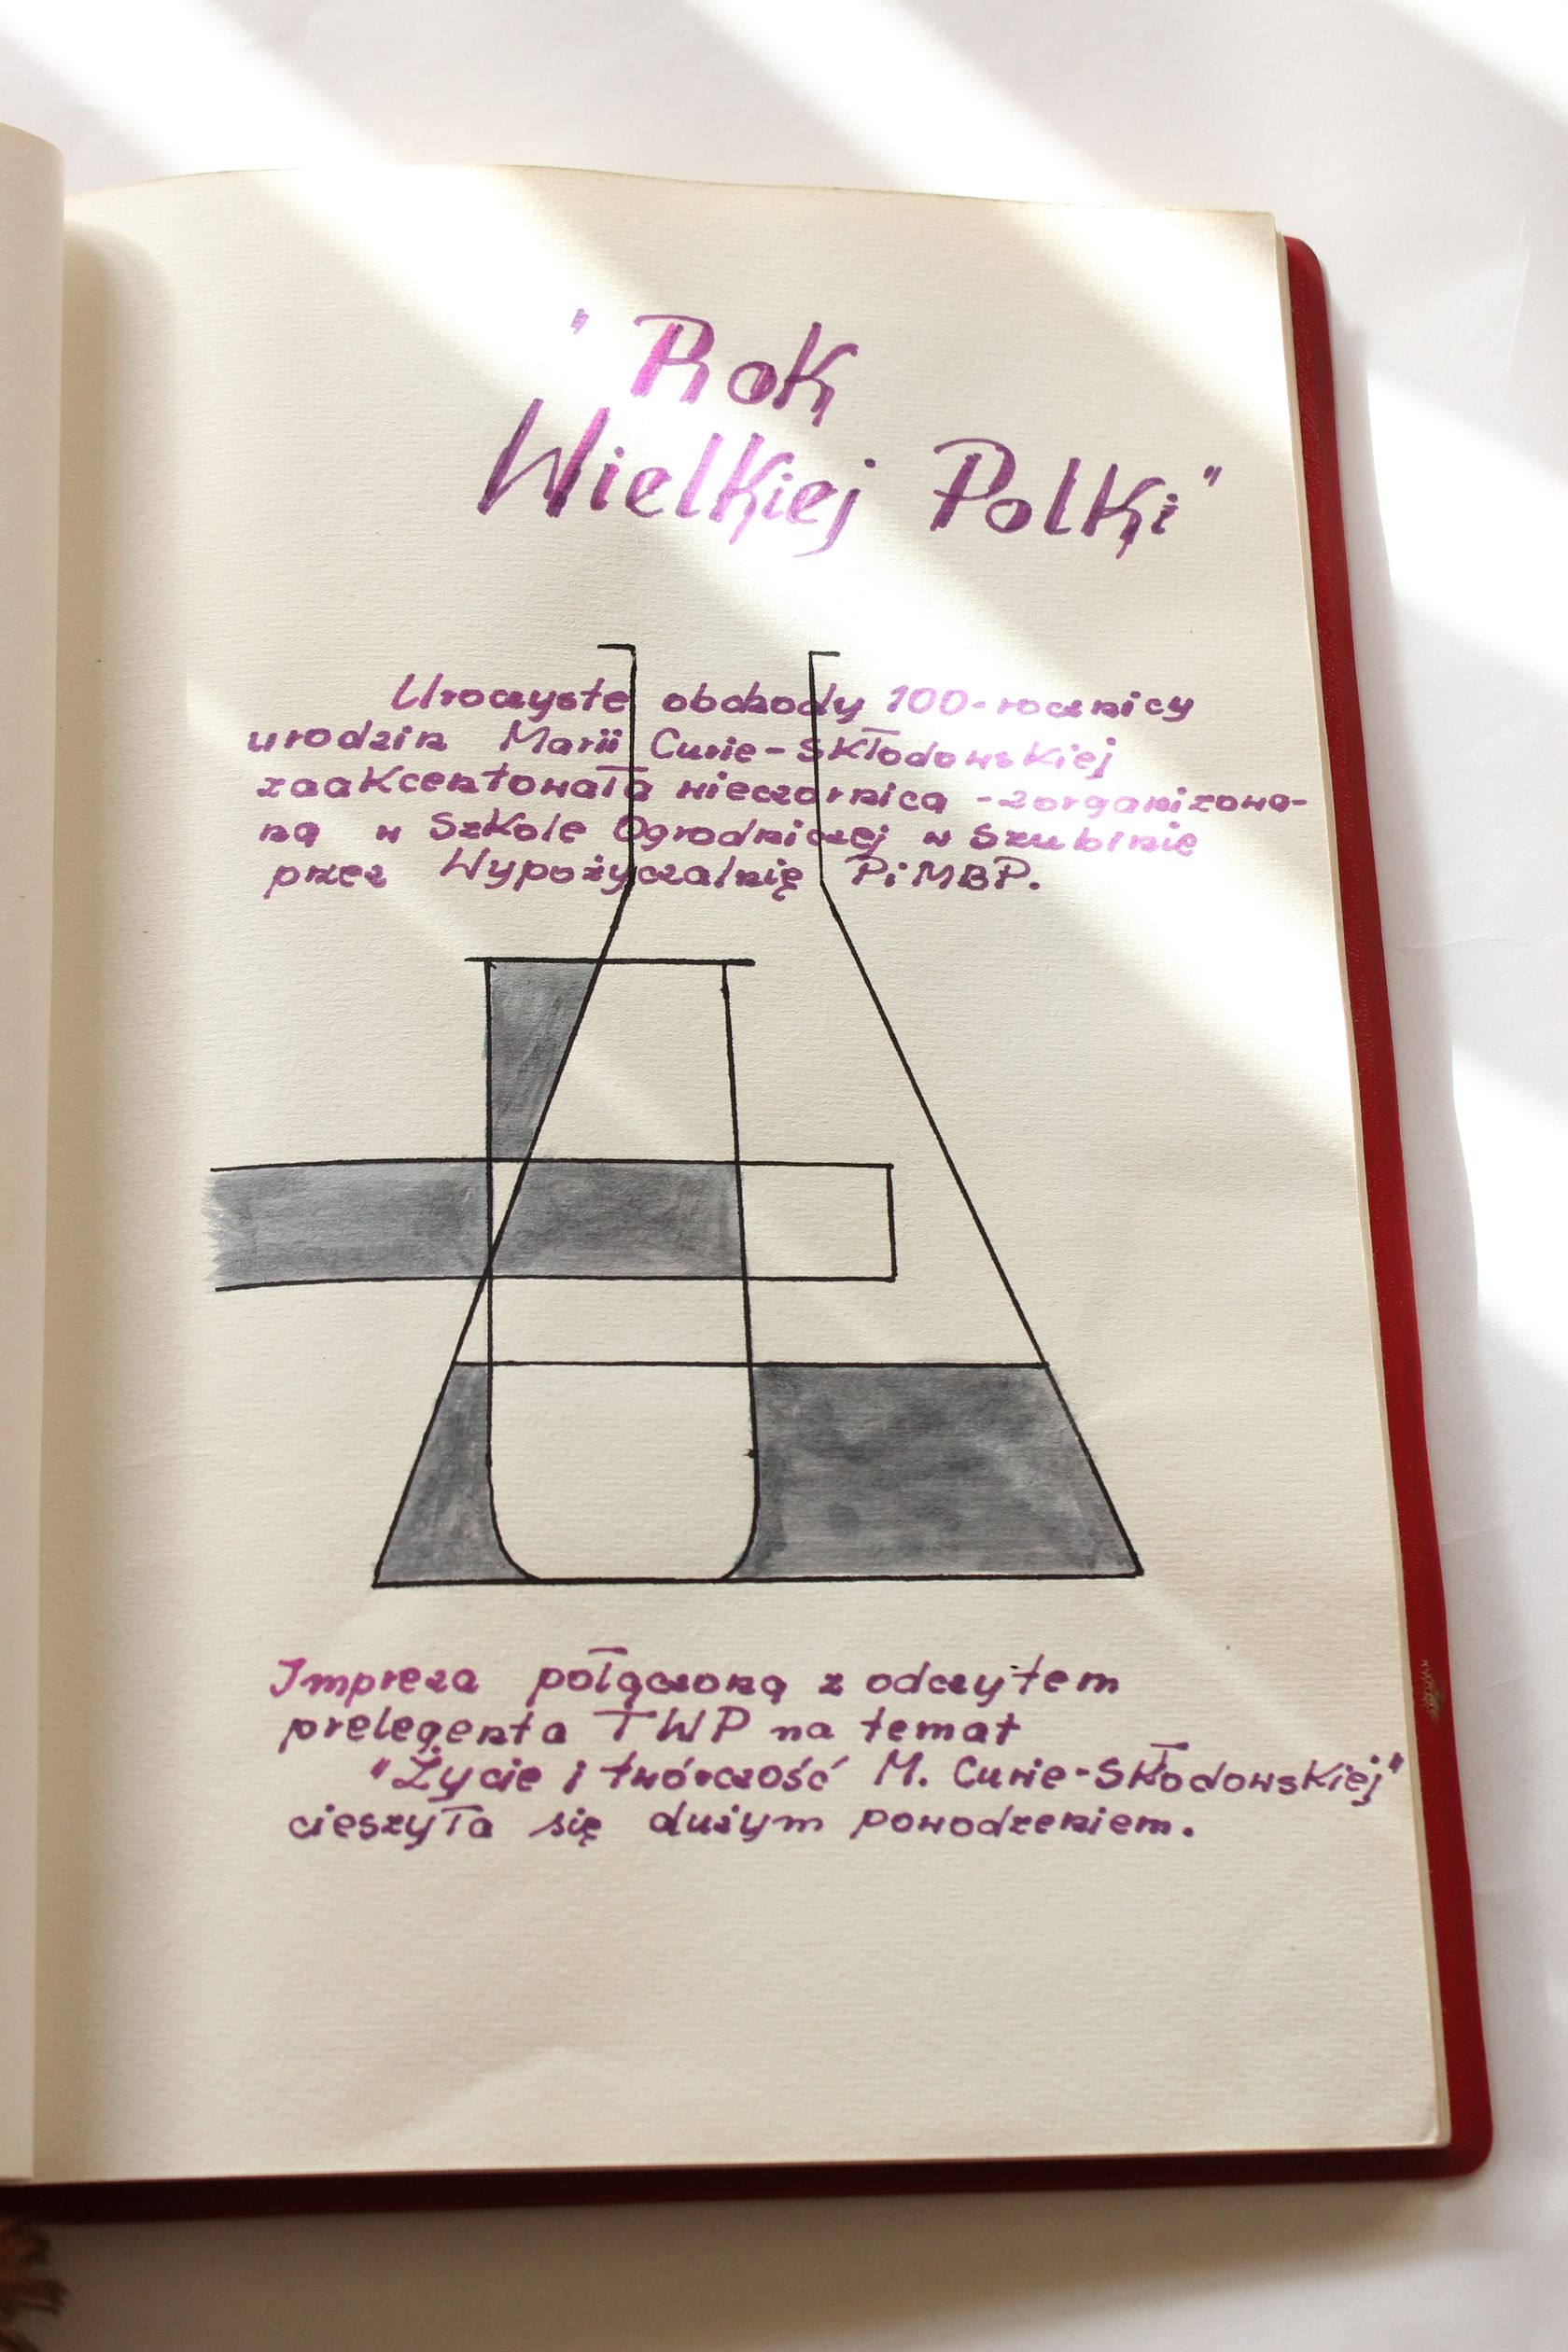 "Rok
Wielkiej Polki"
Uroczyste obchody 100-rocznicy
urodzin Marii Curie-Skłodowskiej
zaakcentowała wieczornica - zorganizowa-
ną w Szkole Ogrodniczej w Szubinie
przez Wypożyczalnię PiMBP.
Impreza połączoną z odczytem
prelegenta TWP na temat
"Życie i twórczość M. Curie-Skłodowskiej"
cieszyła się dużym powodzeniem.